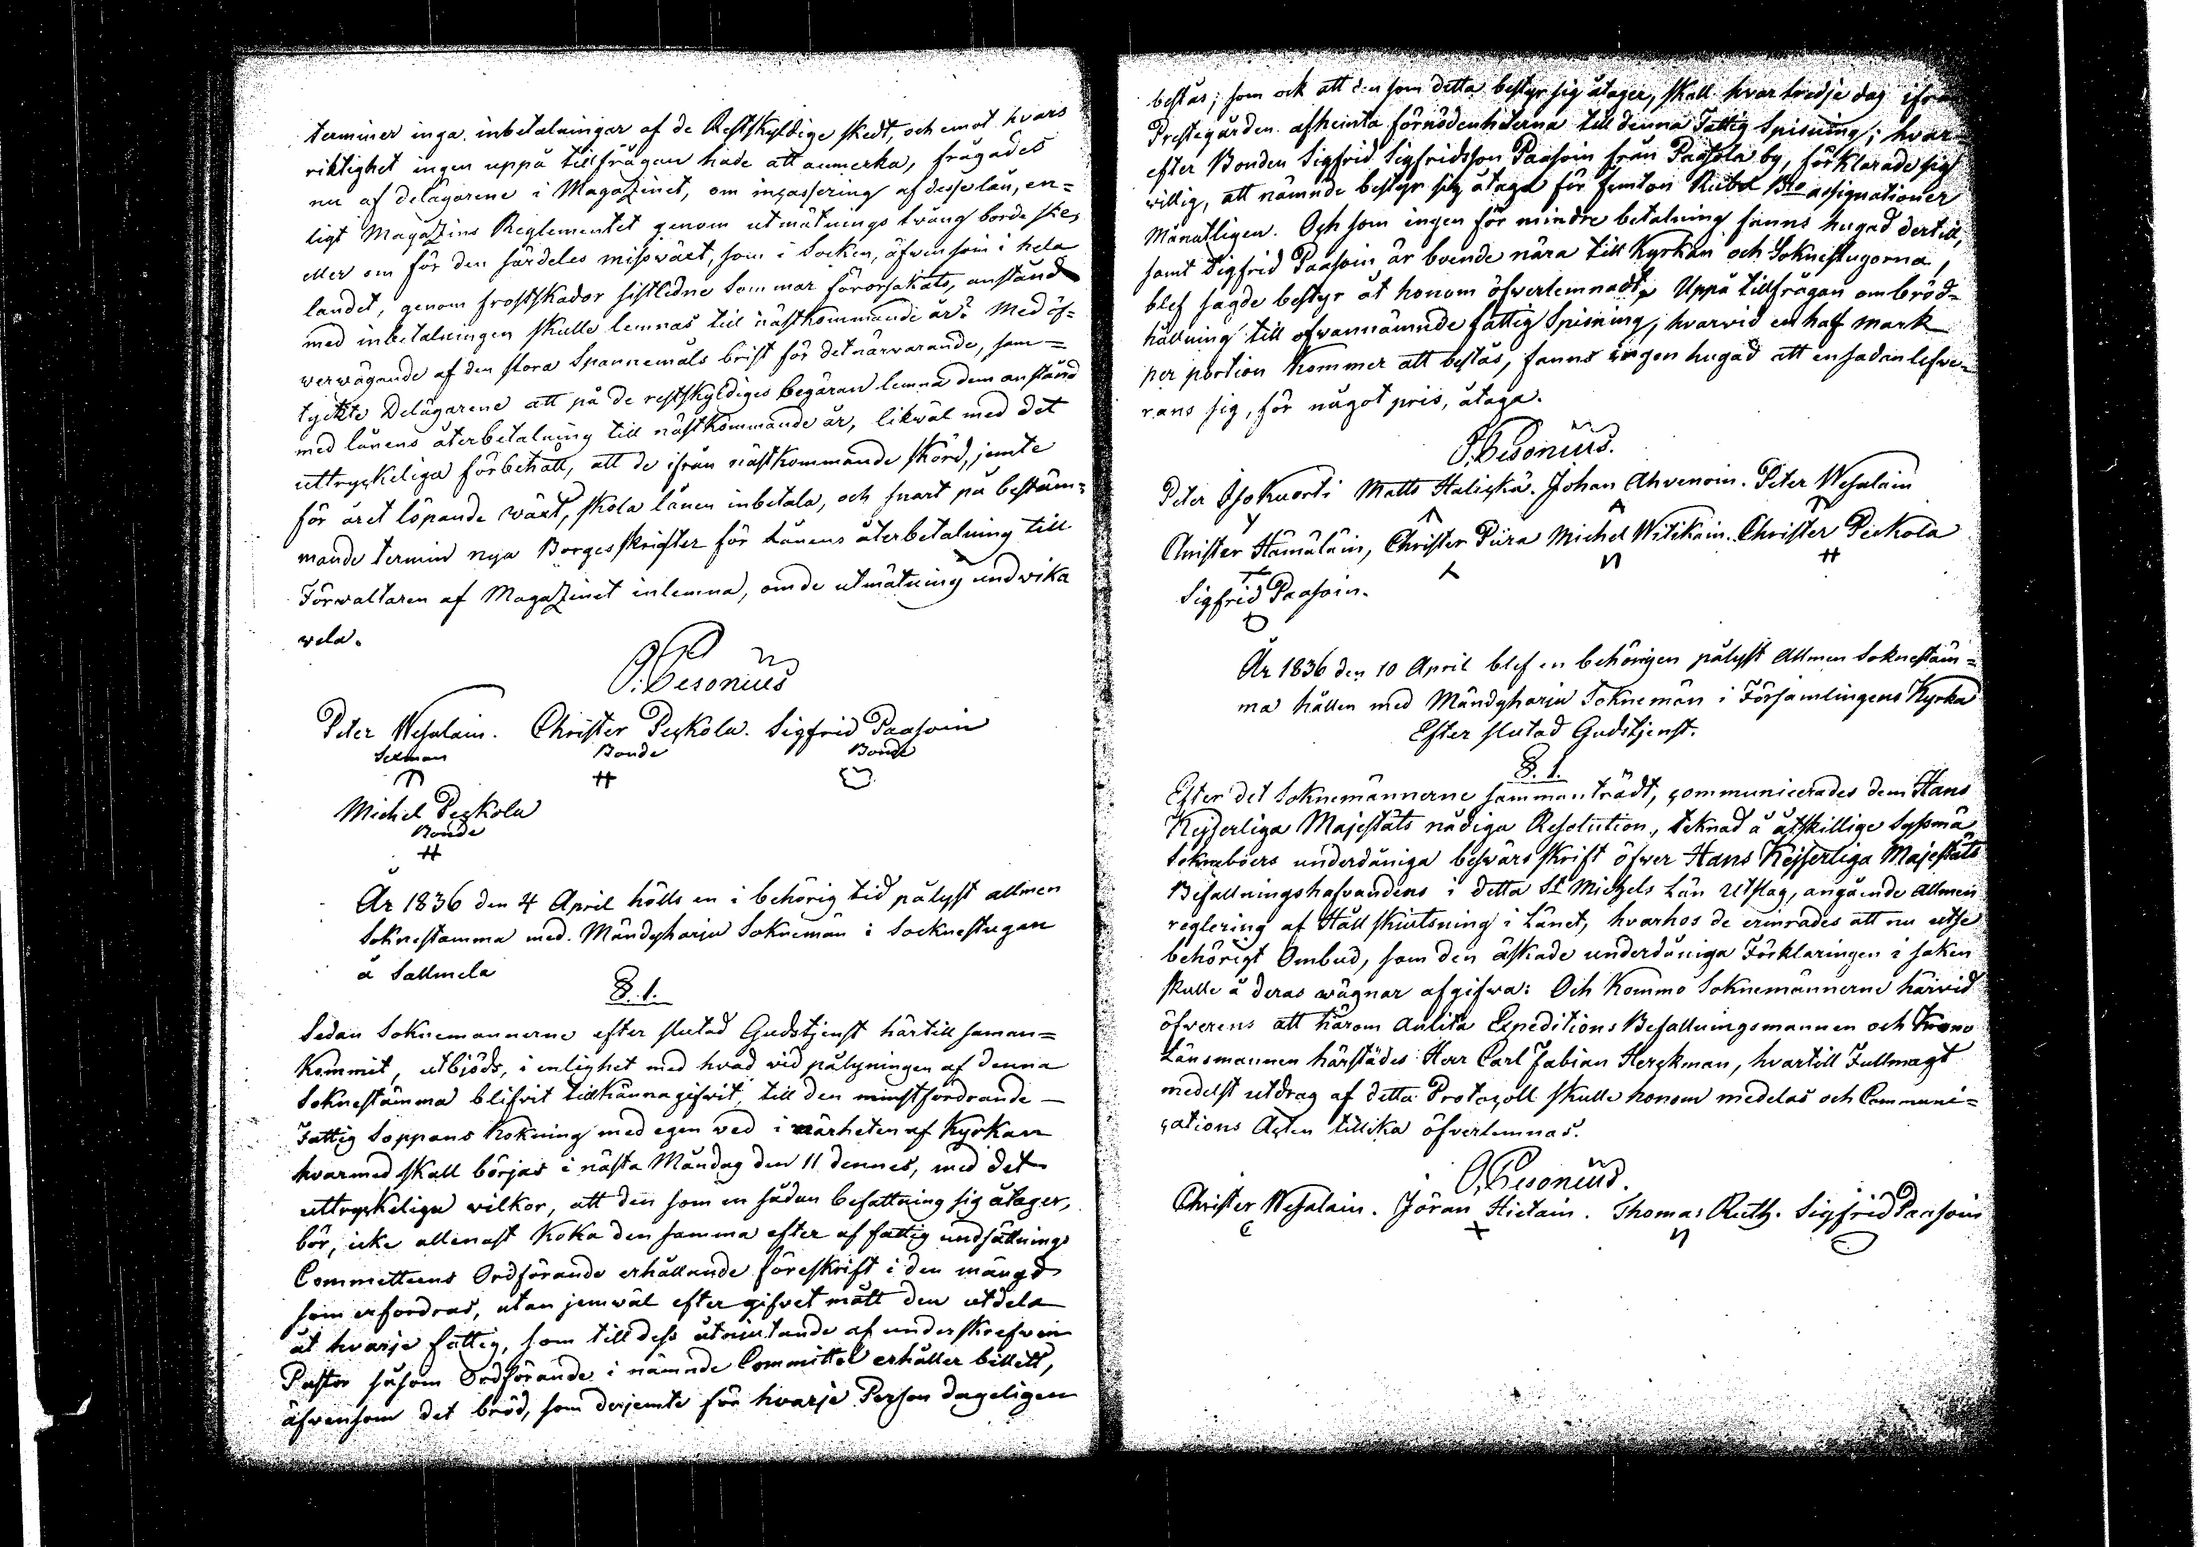 terminer inga inbetalningar af de Restskyldige skedt, och emot hvars
riktighet ingen uppå tillfrågan hade att anmerka, frågades
nu af delägarene i Magazinet, om incassering af desse lån, en=
ligt Magazins Reglementet genom utmätnings tvång borde ske,
eller om för den särdeles missväxt, som i Socken, äfvensom i hela
landet, genom frostskador sistledne Sommar förorsakats, anstånd
med inbetalningen skulle lemnas till nästkommande år? Med öf=
vervägande af den stora Spannemåls brist för det närvarande, sam=
tyckte Delägarene att på de restskyldiges begäran lemna dem anstånd
med lånens återbetalning till nästkommande år, likväl med det
uttryckeliga förbehåll, att de ifrån nästkommande skörd, jemte
för året löpande växt, skola lånen inbetala, och snart på bestäm=
mande termin nya Borgesskrifter för Lånens återbetalning till
Förvaltaren af Magazinet inlemna, om de utmätning undvika
vela.
P. Pesonius
Peter Wesalain. Christer Peckola. Sigfrid Paasoin
Sexman Bonde Bonde
Michel Peckola
Bonde
År 1836 den 4 April hölls en i behörig tid pålyst allmen
Soknestamma med Mändyharju Soknemän i Socknestugan
å Sallmela
§. 1.
Sedan Soknemannerne efter slutad Gudstjenst härtill saman=
kommit, utbjöds, i enlighet med hvad vid pålysningen af denna
Soknestämma blifvit tillkännagifvit, till den minstfordrande
Fattig Soppans kokning med egen ved i närheten af Kyrkan
hvarmed skall börjas i nästa Måndag den 11 dennes, med det
uttryckeliga vilkor, att den som en sådan befattning sig åtager,
bör, icke allenast koka den samma efter af fattig undsättnings
Committeens Ordförande erhållande föreskrift i den mängd
som erfordras, utan jemväl efter gifvet mått den utdela
åt hvarje fattig, som till dess åtnjutande af underskrefven
Pastor såsom Ordförande i nämnde Committé erhåller billett,
äfvensom det bröd, som derjemte för hvarje Person dageligen
bestås; som ock att den som detta bestyr sig åtager, skall hvar tredje dag ifrån
Prestegården afhemta förnödenheterna till denna Fattig Spisning; hvar=
efter Bonden Sigfrid Sigfridsson Paasoin från Paasola by, förklarade sig
villig, att nämnde bestyr sig åtaga för femton Rubel Bco assignationer
Månatligen. Och som ingen för mindre betalning fanns hugad dertill,
samt Sigfrid Paasoin är boende nära till Kyrkan och Soknestugorna,
blef sagde bestyr åt honom öfverlemnadt. Uppå tillfrågan om bröd=
hållning till ofvannämnde fattig Spisning, hvarvid en half mark
per portion kommer att bestås, fanns ingen hugad att en sadan lefve=
rans sig, för något pris, åtaga.
P. Pesonius.
Peter Isokuorti Matts Halickä. Johan Ahvenoin. Peter Wesalain
Christer Hämäläin, Christer Piira Michel Witikain. Christer Peckola
Sigfrid Paasoin.
År 1836 den 10 April blef en behörigen pålyst Allmen Soknestäm=
ma hållen med Mändyharju Soknemän i Församlingens Kyrka
Efter slutad Gudstjenst.
§. 1.
Efter det Soknemännerne sammanträdt, communicerades dem Hans
Kejserliga Majestäts nådiga Resolution, teknad å åtskillige Sysmä
Sokneboers underdåniga besvärsskrift öfver Hans Kejserliga Majestäts
Befallningshafvandens i detta St Michels Län Utslag, angående Allmen
reglering af Håll skjutsning i Länet, hvarhos de erinrades att nu utse
behörigt Ombud, som den äskade underdåniga Förklaringen i saken
skulle å deras vägnar afgifva: Och kommo Soknemännerne härvid
öfverens att härom anlita Expeditions Befallningsmannen och Krono
Länsmannen härstädes Herr Carl Fabian Herckman, hvartill Fullmagt
medelst utdrag af detta Protocoll skulle honom medelas och Communi=
cations Acten tillika öfverlemnas.
P. Pesonius.
Christer Wesalain. Jöran Hietain. Thomas Ruth. Sigfrid Paasoin